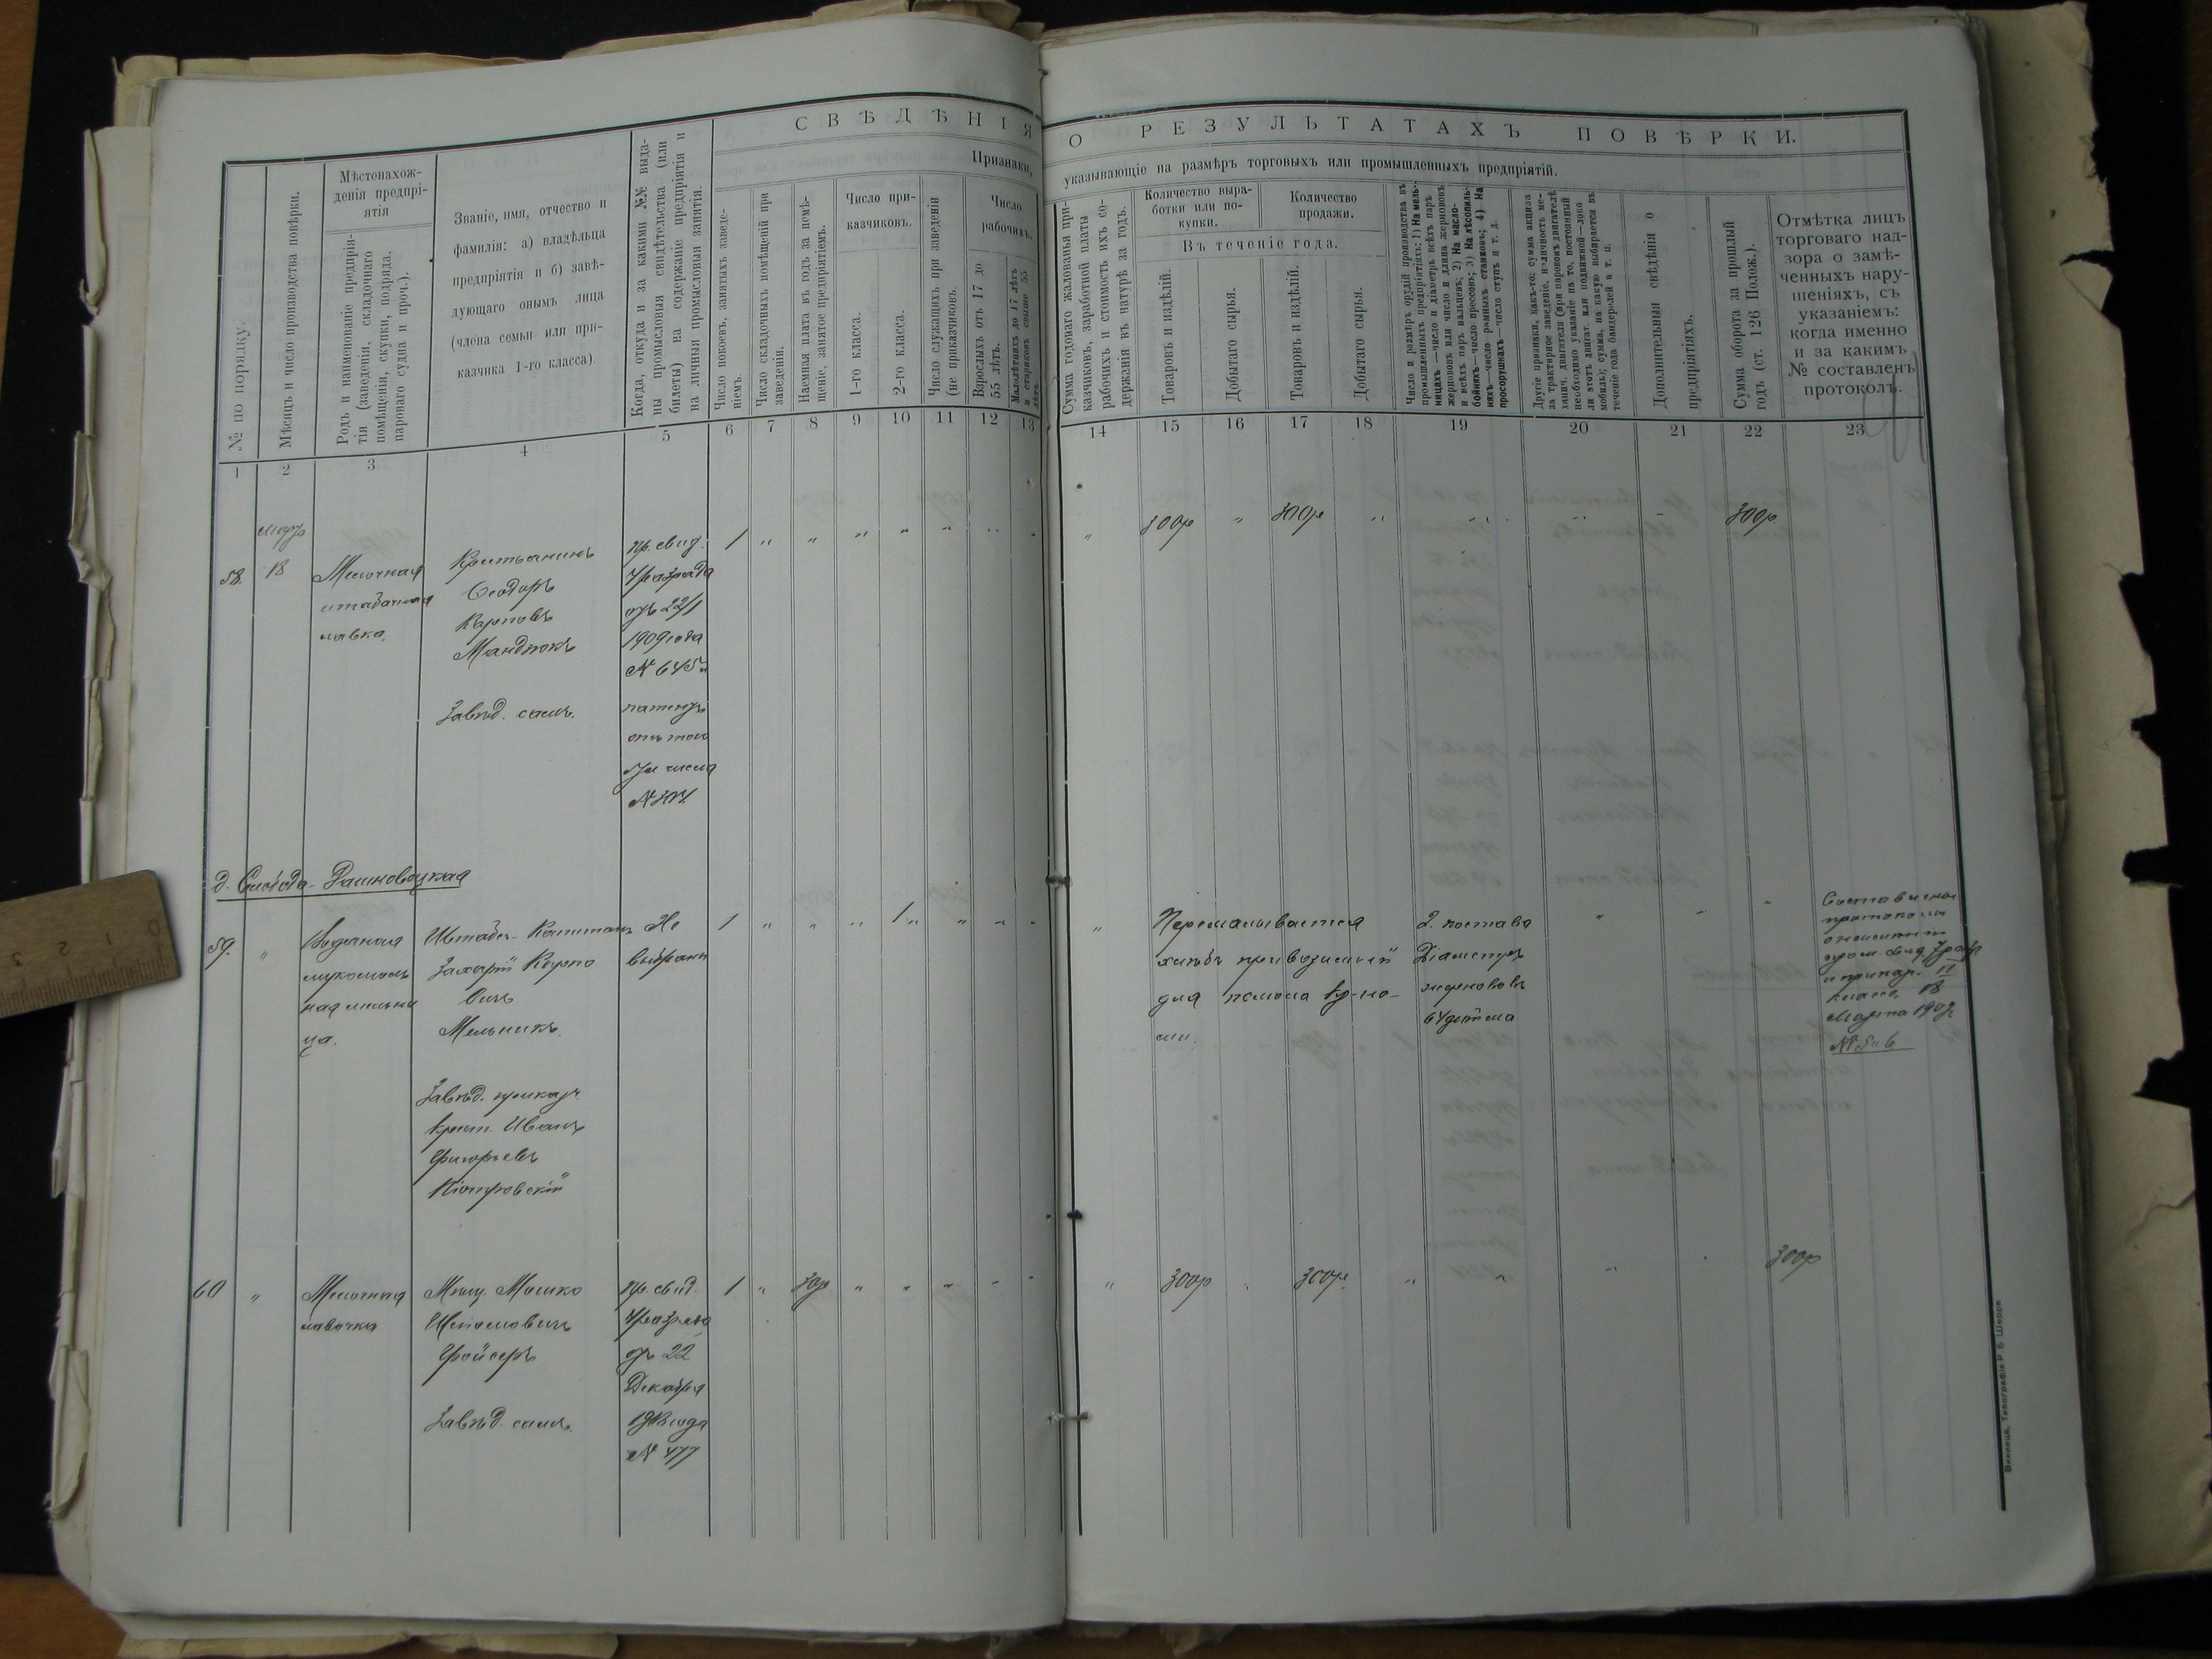 СВѢДѢНІЯ О РЕЗУЛЬТАТАХЪ ПОВѢРКИ.
Признаки, указывающіе на размѣръ торговыхъ или промышленныхъ предпріятій.
№ по порядку.
Мѣсяцъ и число производства повѣрки.
Мѣстонахож-
денія предпрі-
ятія
Родъ и наименованіе предпрія-
тія (заведенія, складочнаго
помѣщенія, скупки, подряда,
парового судна и проч.).
Званіе, имя, отчество и
фамилія: а) владѣльца
предпріятія и б) завѣ-
дующаго онымъ лица
(члена семьи или при-
казчика 1-го класса).
Когда, откуда и за какими №№ выда-
ны промысловыя свидѣтельства (или
билеты) на содержаніе предпріятія и
на личныя промысловыя занятія.
Число покоевъ, занятыхъ заведе-
ніемъ.
Число складочныхъ помѣщеній при
заведеніи.
Наемная плата въ годъ за помѣ-
щеніе, занятое предпріятіемъ.
Число при-
казчиковъ.
1-го класса.
2-го класса.
Число служащихъ при заведеніи
(не приказчиковъ.
Число
рабочихъ.
Взрослыхъ отъ 17 до
55 лѣтъ.
Малолѣтнихъ до 17 лѣтъ
и стариковъ свыше 55
лѣтъ.
Сумма годоваго жалованья при-
казчиковъ, заработной платы
рабочихъ и стоимость ихъ со-
держанія въ натурѣ за годъ.
Количество выра-
ботки или по-
купки.
Количество
продажи.
Въ теченіе года.
Товаровъ и издѣлій.
Добытаго сырья.
Товаровъ и издѣлій.
Добытаго сырья.
Число и размѣръ орудій производства въ
промышленныхъ предпріятіяхъ: 1) На мель-
ницахъ—число и діаметръ всѣхъ паръ
жернововъ или число и длина жернововъ
и всѣхъ паръ вальцевъ; 2) На масло-
бойняхъ—число прессовъ; 3) На лѣсопиль-
няхъ—число рамныхъ ставковъ; 4) На
просорушкахъ—число ступъ и т. д.
Другіе признаки, какъ-то: сумма акциза
за трактирное заведеніе, наличность ме-
ханич. двигателя (при паровомъ двигателѣ
необходимо указаніе на то, постоянный
ли этотъ двигат. или подвижной—локо
мобиль); сумма, на какую выбирается въ
теченіе года бандеролей и т. п.
Дополнительныя свѣдѣнія о
предпріятіяхъ.
Сумма оборота за прошлый
годъ (ст. 126 Полож.).
Отмѣтка лицъ
торговаго над-
зора о замѣ-
ченныхъ нару-
шеніяхъ, съ
указаніемъ:
когда именно
и за какимъ
№ составленъ
протоколъ.
1 2 3 4 5 6 7 8 9 10 11 12 13 14 15 16 17 18 19 20 21 22 23
58. Мартъ 18
Мелочная
и табачная
лавка.
Крестьянинъ
Ѳеодоръ
Карповъ
Мандзюкъ
Завѣд. самъ.
пр. свид.
4 разряда
отъ 22/I
1909 года
№ 645 и
патентъ
отъ того
же числа
1 " " " " " " " " 300р " 300р " " " 300р
д. Слобода-Рашновецкая
59. "
Водяная
мукомоль
ная мельни
ца.
Штабсъ-Капитанъ
Захарій Карпо
вичъ
Мельникъ.
Завѣд. приказч.
крест. Иванъ
Григорьевъ
Не
выбраны
1 " " " 1 " " " " "
Перемалывается
хлѣбъ привозимый
для помола кр-на-
ми.
2. постава
Діаметръ
жернововъ
" " "
Составленъ
протоколъ
класса, 18
Марта 1909
60 "
Мелочная
лавочка
Мѣщ. Мошко
Фройсеръ
Завѣд. самъ.
пр. свид.
4 разряда
отъ 22
Декабря
№ 477
1 " 30р " " " " " " 300р " 300р " " " " 300р
Винница, Типографія Р. Б. Шерра